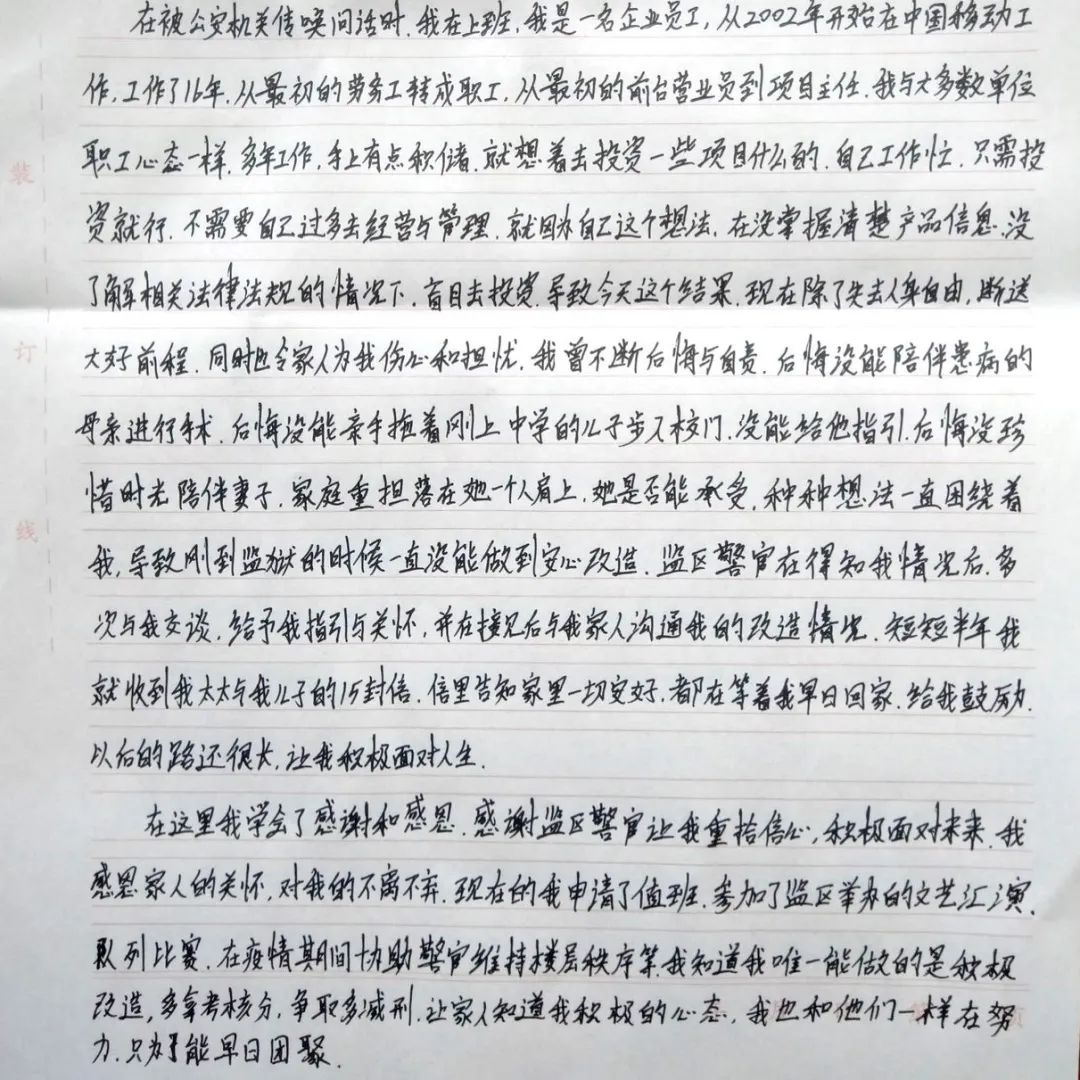 在被公安机关传唤问话时,我在上班,我是一名企业员工,从2002年开始在中国移动工
作,工作了16年.从最初的劳务工转成职工,从最初的前台营业员到项目主任.我与大多数单位
职工心态一样.多年工作.手上有点积储.就想着去投资一些项目什么的.自己工作忙.只需投
资就行.不需要自己过多去经营与管理.就因为自己这个想法.在没掌握清楚产品信息.没
了解相关法律法规的情况下.盲目去投资.导致今天这个结果.现在除了失去人身自由,断送
大好前程.同时也令家人为我伤心和担忧.我曾不断后悔与自责.后悔没能陪伴患病的
母亲进行手术.后悔没能亲手拖着刚上中学的儿子步入校门.没能给他指引.后悔没珍
惜时光陪伴妻子.家庭重担落在她一个人肩上.她是否能承受.种种想法一直困绕着
我,导致刚到监狱的时候一直没能做到安心改造.监区警官在得知我情况后.多
次与我交谈.给予我指引与关怀,并在接见后与我家人沟通我的改造情况.短短半年我
就收到我太太与我儿子的15封信.信里告知家里一切安好.都在等着我早日回家.给我鼓励.
以后的路还很长,让我积极面对人生.
在这里我学会了感谢和感恩.感谢监区警官让我重拾信心,积极面对未来.我
感恩家人的关怀,对我的不离不弃.现在的我申请了值班.参加了监区举办的文艺汇演.
队列比赛.在疫情期间协助警官维持楼层秩序等.我知道我唯一能做的是积极
改造,多拿考核分,争取多减刑.让家人知道我积极的心态,我也和他们一样在努
力.只为了能早日团聚.
装
订
线